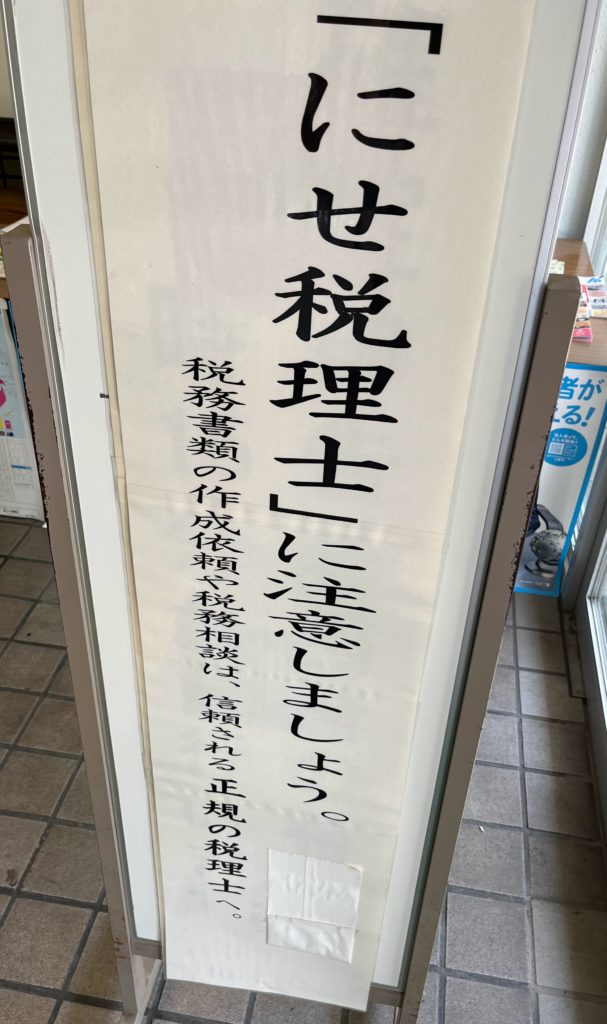 「にせ税理士」に注意しましょう。
税務書類の作成依頼や税務相談は、信頼される正規の税理士へ。
者が
える!